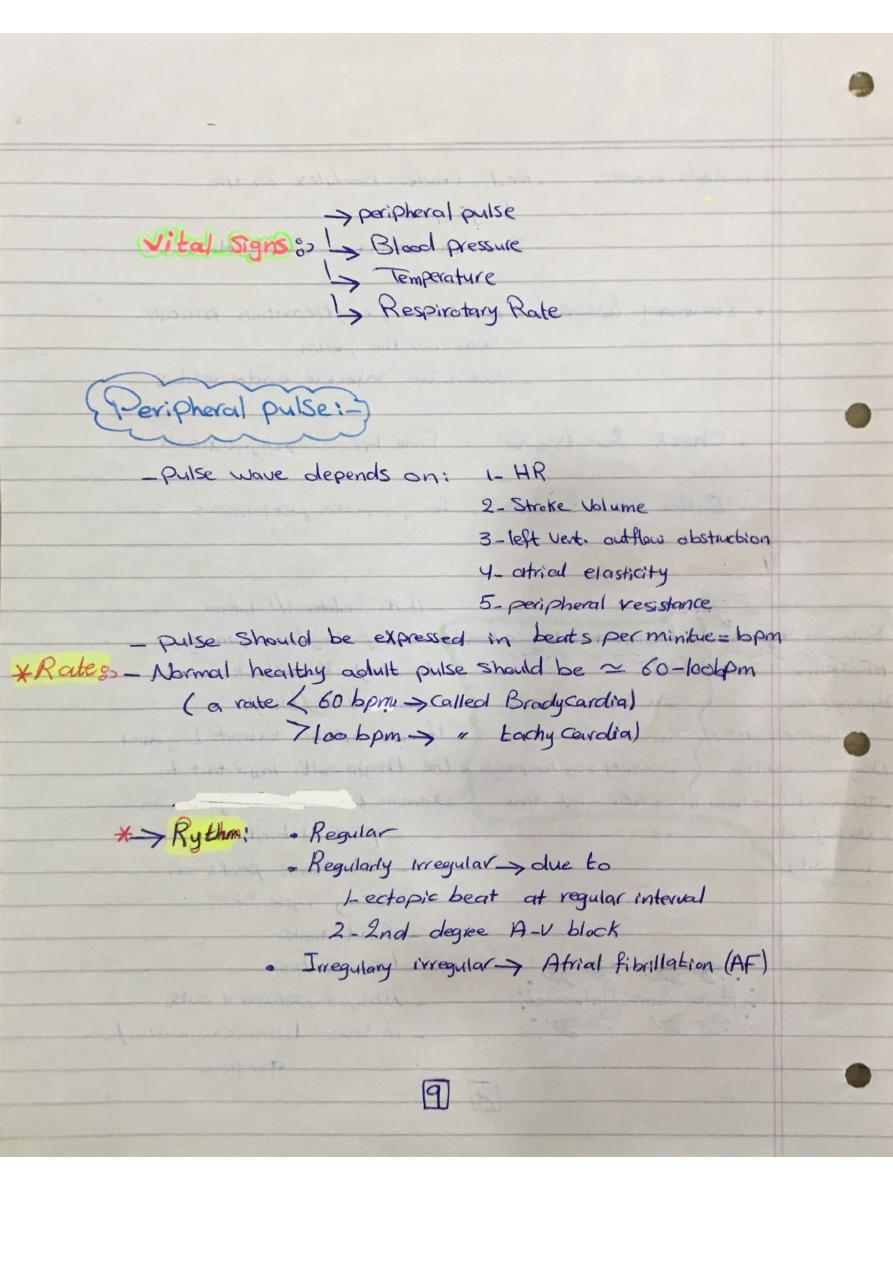 → peripheral pulse
Vital Signs:> ↳ Blood pressure
↳ Temperature
↳ Respirotary Rate
Peripheral pulse:-
- pulse wave depends on: 1- HR
2- Stroke Volume
3- left vent. outflow obstruction
4- atrial elasticity
5- peripheral resistance
- pulse should be expressed in beats per minitue = bpm
* Rate:> - Normal healthy adult pulse should be ≃ 60-100bpm
( a rate < 60 bpm → called Bradycardia)
> 100 bpm → " tachy cardia)
* → Rythm: • Regular
• Regularly irregular → due to
1- ectopic beat at regular interval
2- 2nd degree A-V block
• Irregulary irregular → Atrial fibrillation (AF)
9